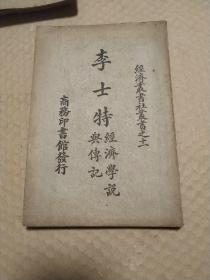 經濟叢書社叢書之十
李士特經濟學說與傳記
商務印書館發行